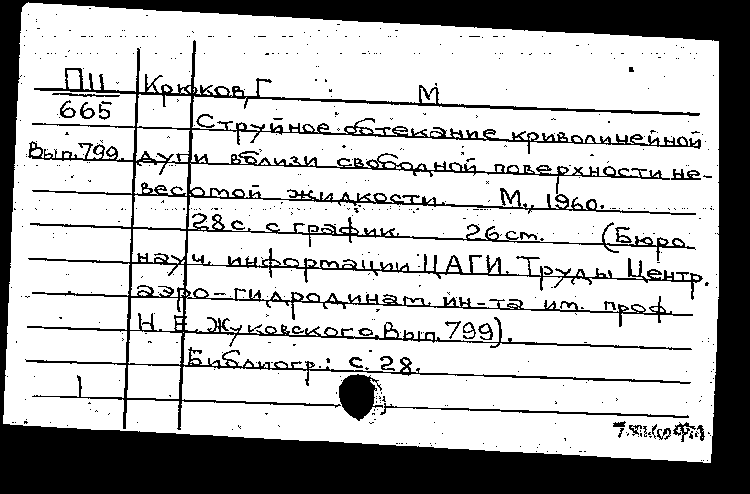 ПII Крюков, Г М
665
Струйное обтекание криволинейной
Вып. 799. дуги вблизи свободной поверхности не-
весомой жидкости. М., 1960.
28 с. с график. 26 см. (Бюро
науч. информации ЦАГИ. Труды Центр.
аэро-гидродинам. ин-та им. проф.
Н. Е. Жуковского. Вып. 799).
Библиогр.: с. 28.
1